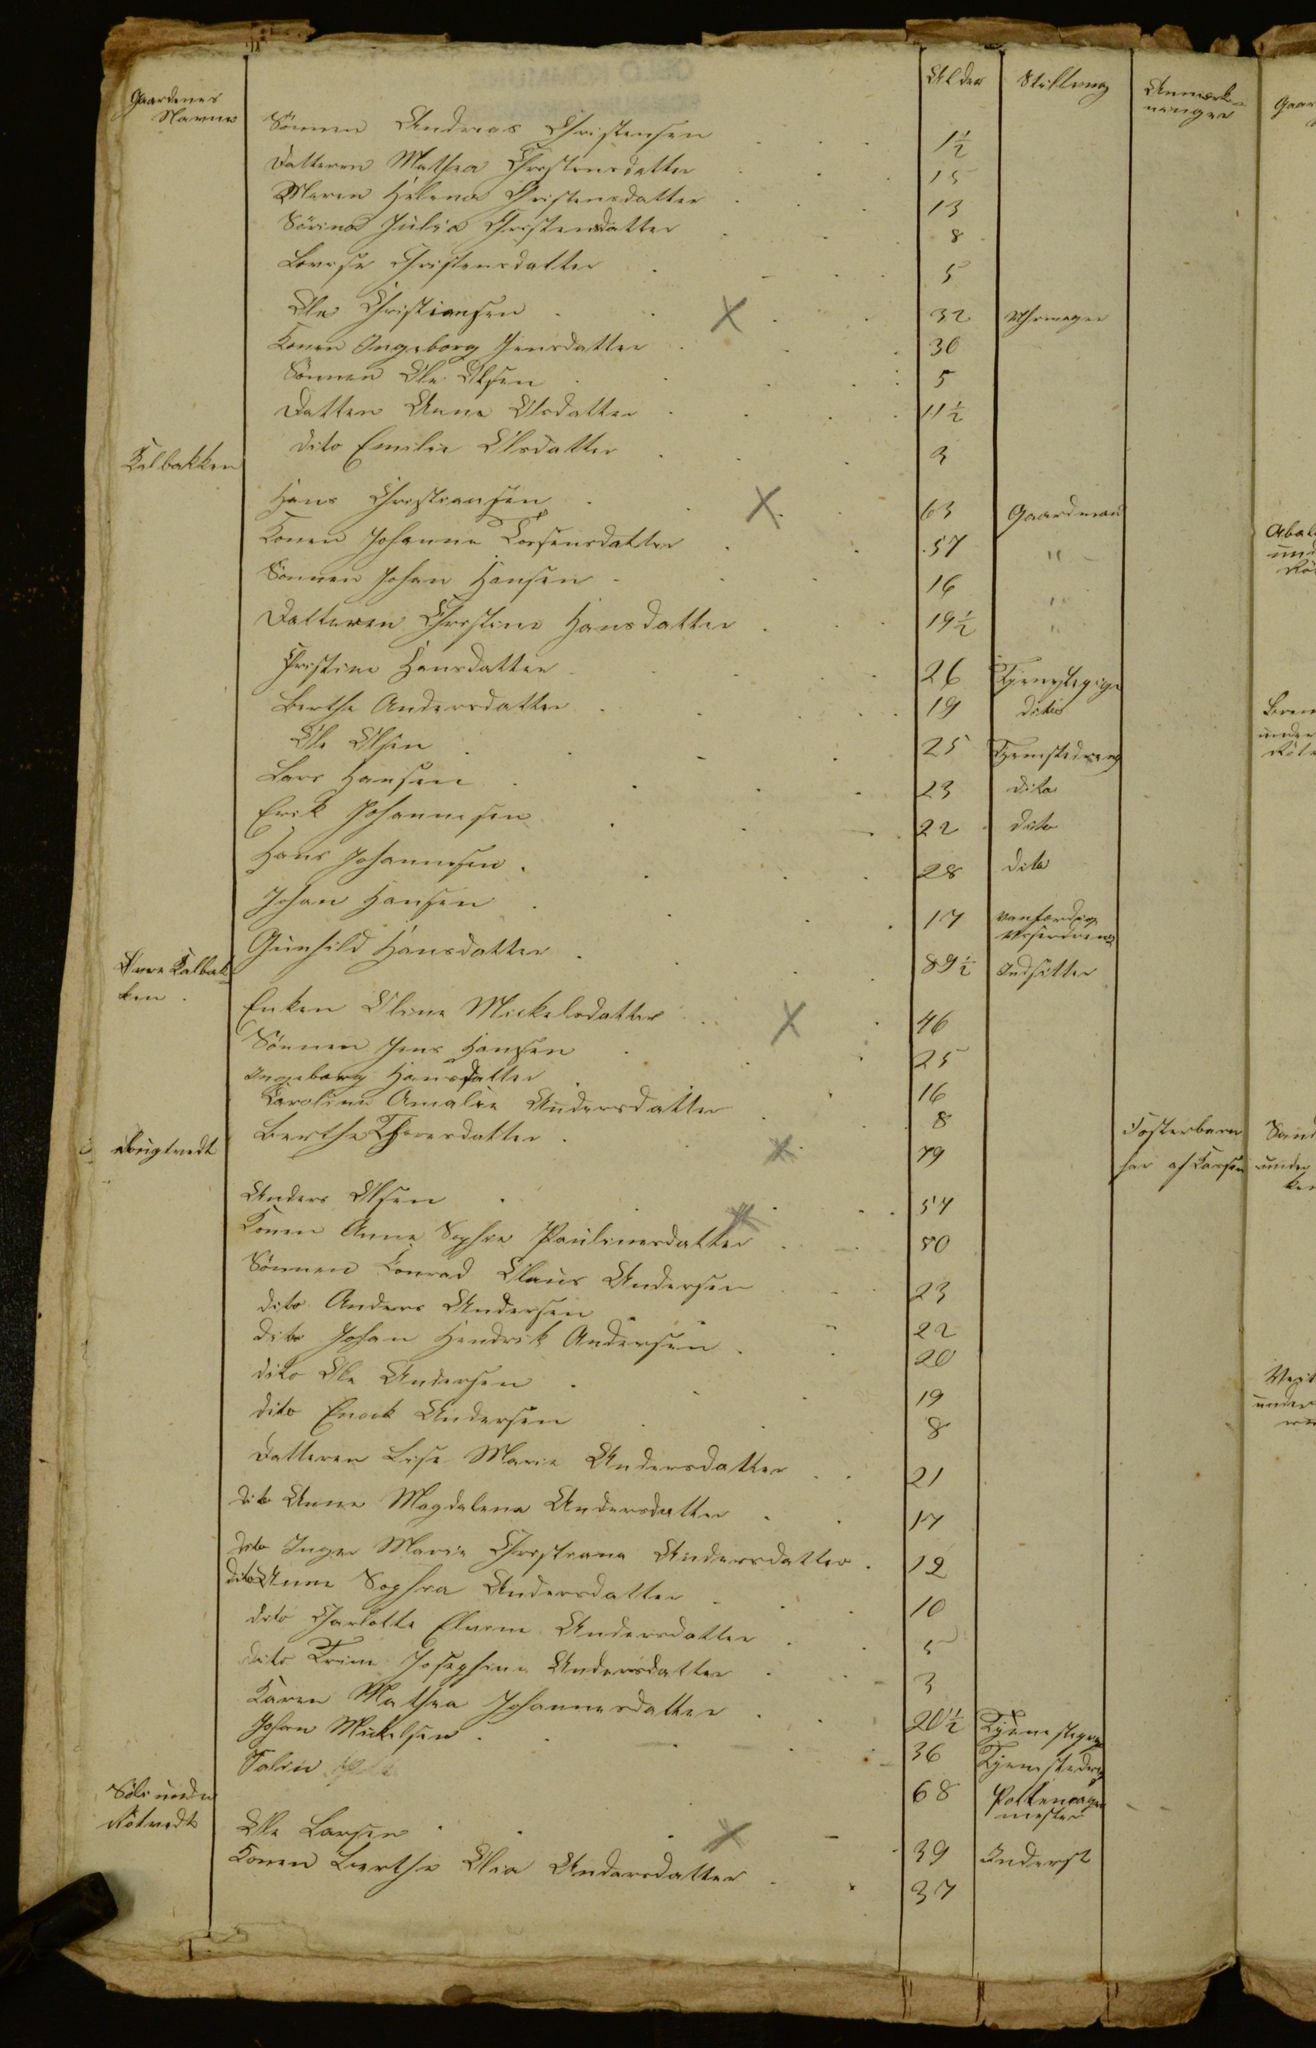 Gaardenes Navne Alder Stilling Anmærkninger
Sönnen Andreas Christensen 1½
Datteren Mathea Christensdatter 15
Maren Helena Christensdatter 13
Sörine Julia Christensdatter 8
Lovise Christensdatter 5
Ole Christiansen 32
Konen Ingeborg Jensdatter 30
Sönnen Ole Olsen 5
Datten Anne Olsdatter 11½
dito Emilie Olsdatter 3
Kalbakken
Hans Christiansen 63 Gaardmand
Konen Johanne Larsensdatter 57 "
Sönnen Johan Hansen 16 "
Datteren Christine Hansdatter 19½ "
Christine Hansdatter 26 Tjenestepige
Berthe Andersdatter 19 dito
Ole Olsen 25 Tjenestedreng
Lars Hansen 23 dito
Erik Johannesen 22 dito
Hans Johannesen 28 dito
Johan Hansen 17 vanfördig
Gunhild Hansdatter 89½ Indsitter
Övre Kalbakken
Enken Oline Mickelsdatter 46
Sönnen Jens Hansen 25
Ingeborg Hansdatter 16
Karoline Amalie Andersdatter 8 Fosterbarn
Berthe Thoresdatter 79 har af Kassen
Anders Olsen 57
Konen Anne Sophie Paulinesdatter 50
Sönnen Conrad Claus Andersen 23
dito Anders Andersen 22
dito Johan Hendrik Andersen 20
dito Ole Andersen 19
dito Enock Andersen 8
Datteren Lise Marie Andersdatter 21
dito Anne Magdalena Andersdatter 17
dito Inger Marie Christiane Andersdatter 12
dito Anne Sophia Andersdatter 10
dito Charlotte Elvine Andersdatter 5
dito Trine Josephine Andersdatter 3
Karen Mathea Johannesdatter 20½ Tjenestepige
Johan Mickelsen 36 Tjenestedreng
68 Pottemagermester
Rötvedt
Ole Larsen 39 Inderst
Konen Berthe Olia Andersdatter 37